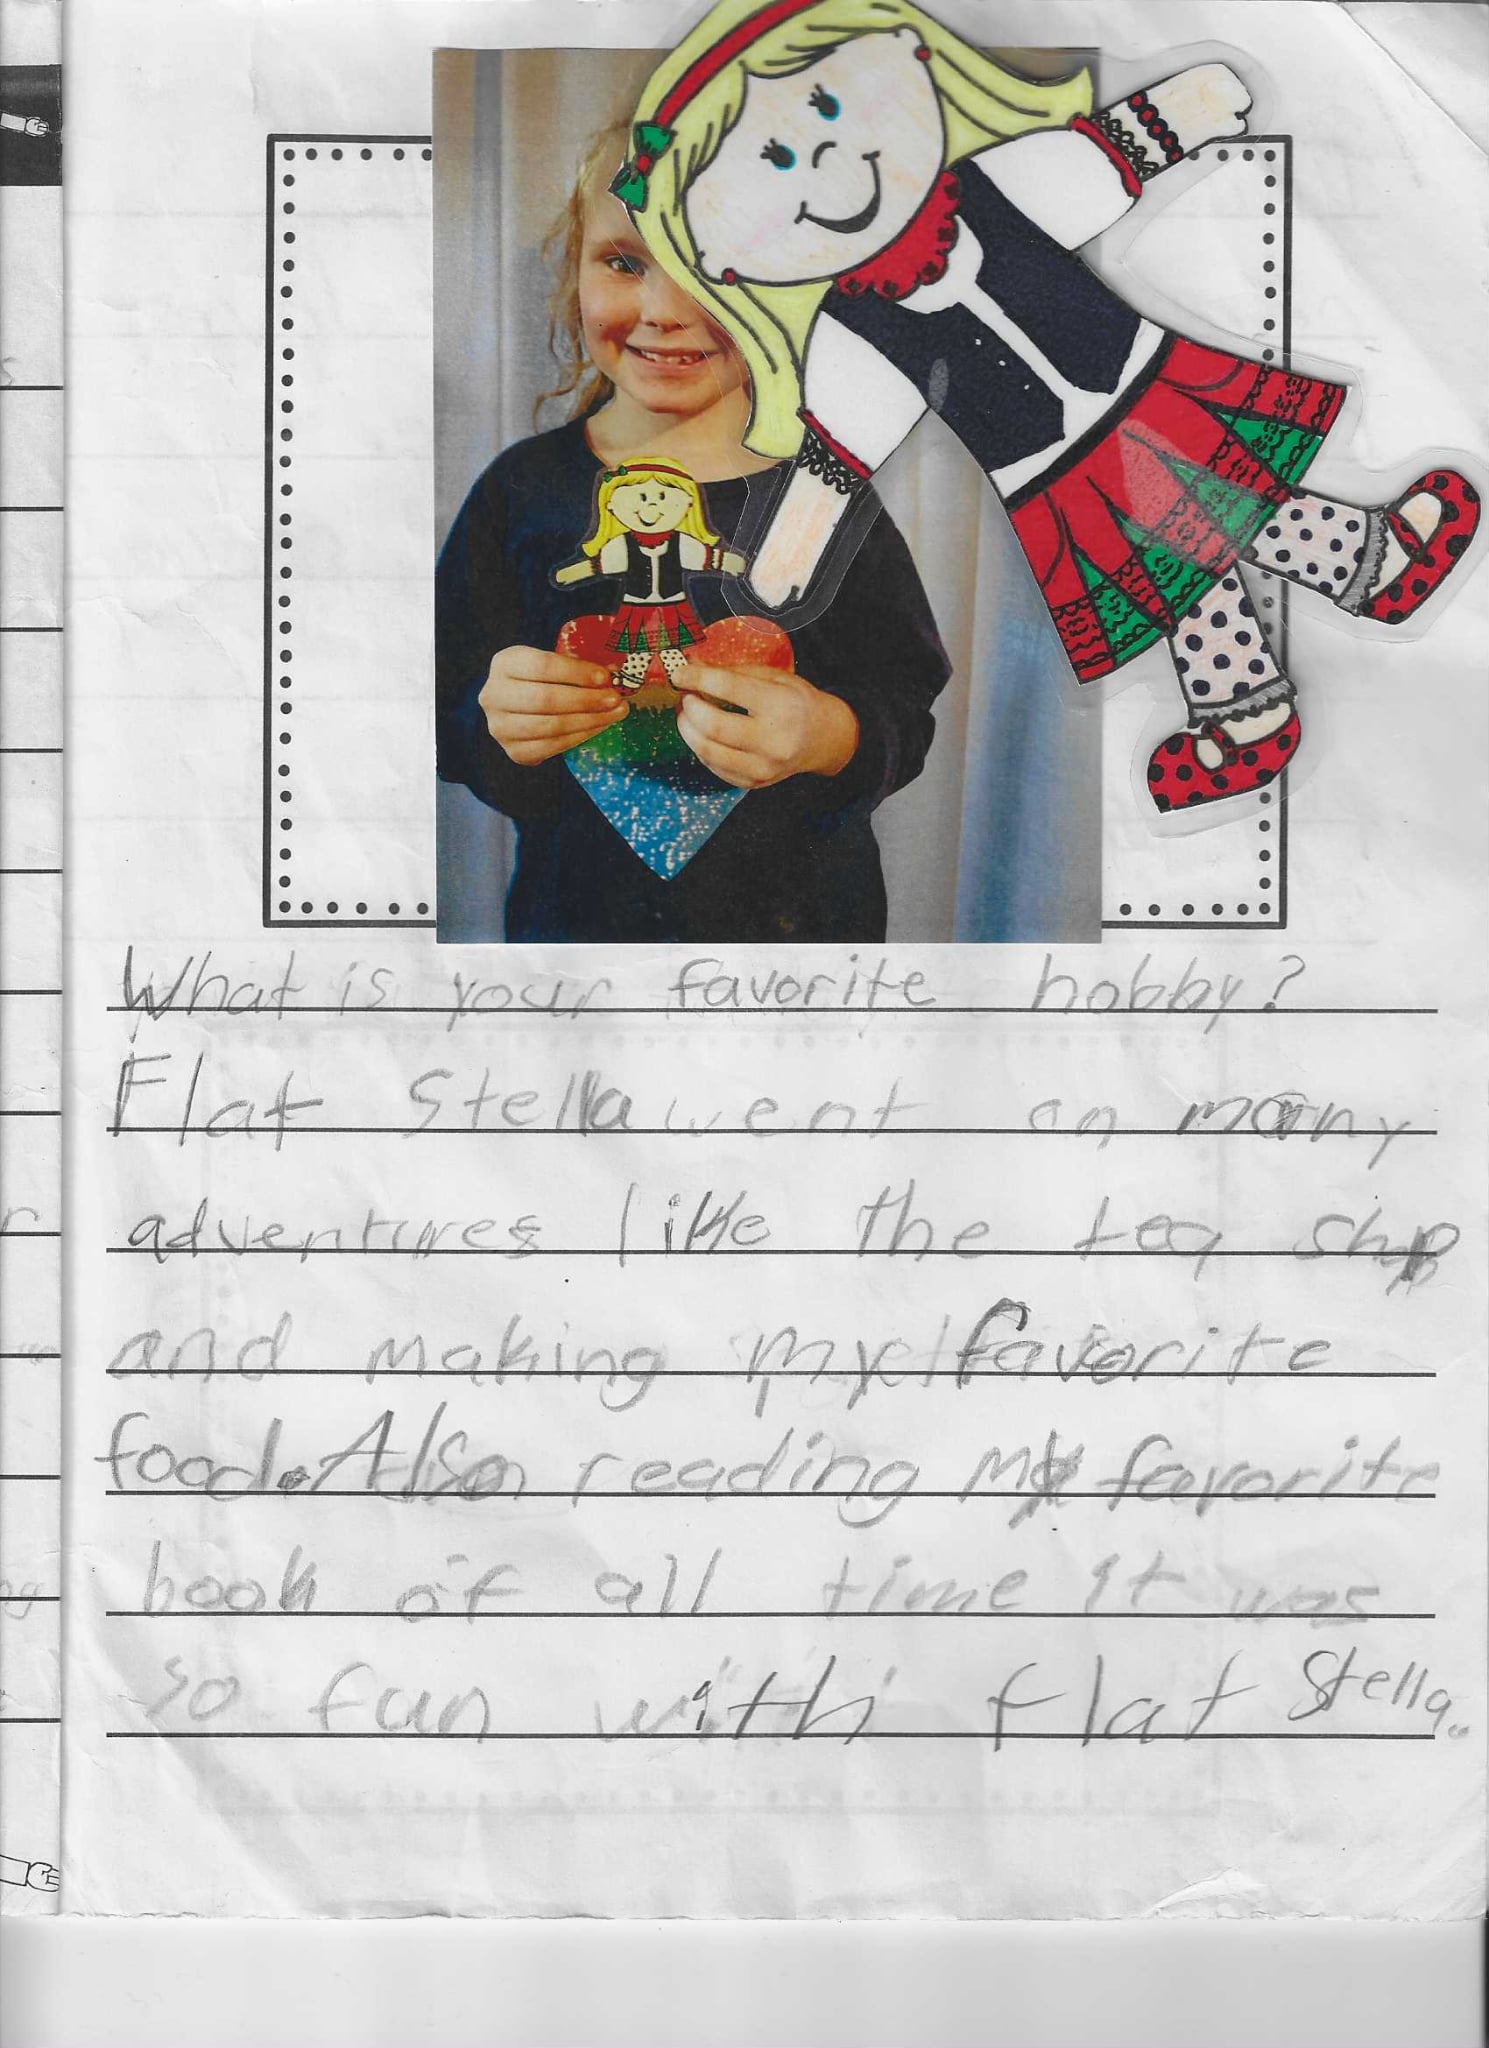 What is your favorite hobby?
Flat Stella went on many
adventures like the tea shop
and making my favorite
food. Also reading my favorite
book of all time it was
so fun with flat Stella..